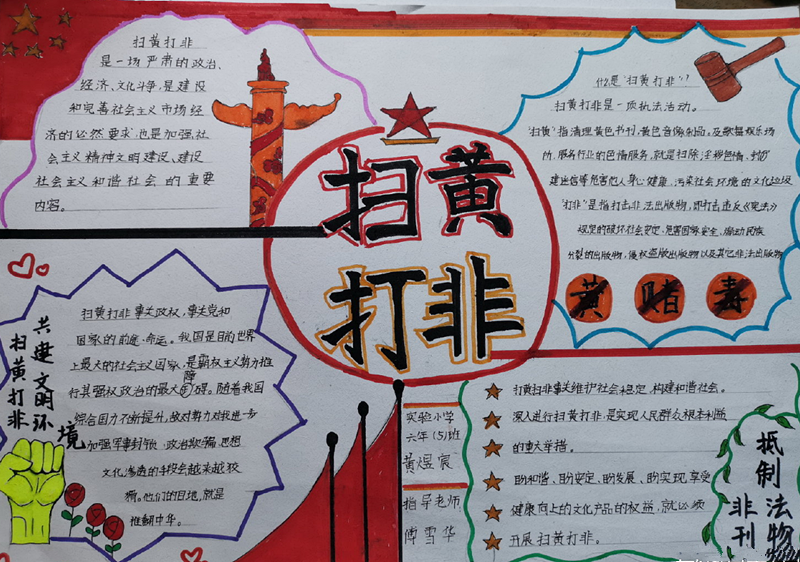 扫黄打非
是一场严肃的政治、
经济、文化斗争,是建设
和完善社会主义市场经
济的必然要求,也是加强社
会主义精神文明建设、建设
社会主义和谐社会的重要
内容。
扫黄
打非
什么是“扫黄打非”?
扫黄打非是一项执法活动。
“扫黄”指清理黄色书刊、黄色音像制品,及歌舞娱乐场
所、服务行业的色情服务,就是扫除淫秽色情、封
建迷信等危害他人身心健康、污染社会环境的文化垃圾
“打非”是指打击非法出版物,即打击违反《宪法》
规定的破坏社会安定、危害国家安全、煽动民族
分裂的出版物,侵权盗版出版物以及其它非法出版物
黄 赌 毒
共建文明环境
扫黄打非
扫黄打非事关政权、事关党和
国家的前途、命运。我国是目前世界
上最大的社会主义国家,是霸权主义势力推
行其强权政治的最大障碍。随着我国
综合国力不断提升,敌对势力对我进一步
加强军事封锁、政治欺骗、思想
文化渗透的手段会越来越狡
猾。他们的目地,就是
推翻中华。
实验小学
六年(5)班
黄煜宸
指导老师
傅雪华
打黄扫非事关维护社会稳定,构建和谐社会。
深入进行扫黄打非,是实现人民群众根本利益
的重大举措。
盼和谐、盼安定、盼发展、盼实现享受
健康向上的文化产品的权益,就必须
开展扫黄打非。
抵制法物
非刊